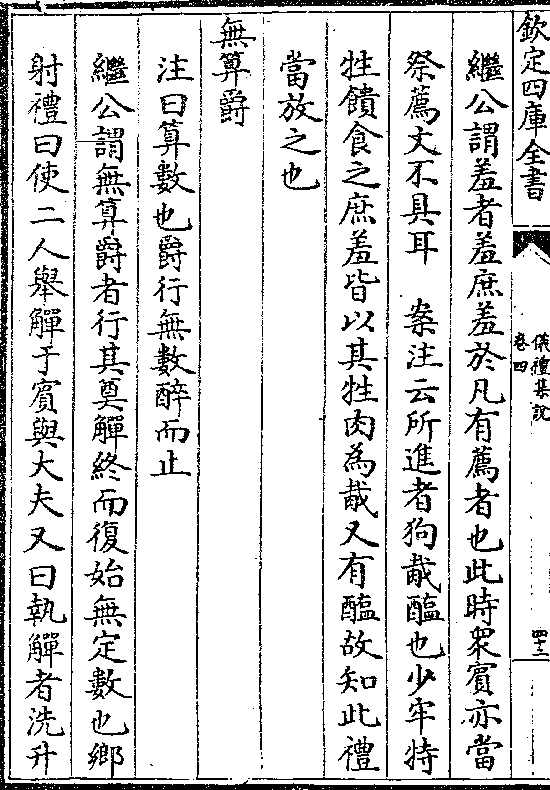 欽定四庫全書
儀禮集說
卷四
四十三
繼公謂羞者羞庶羞於凡有薦者也此時眾賓亦當
祭薦文不具耳　案注云所進者狗胾醢也少牢特
牲饋食之庶羞皆以其牲肉為胾又有醢故知此禮
當放之也
無算爵
注曰算數也爵行無數醉而止
繼公謂無算爵者行其奠觶終而復始無定數也鄉
射禮曰使二人舉觶于賓與大夫又曰執觶者洗升